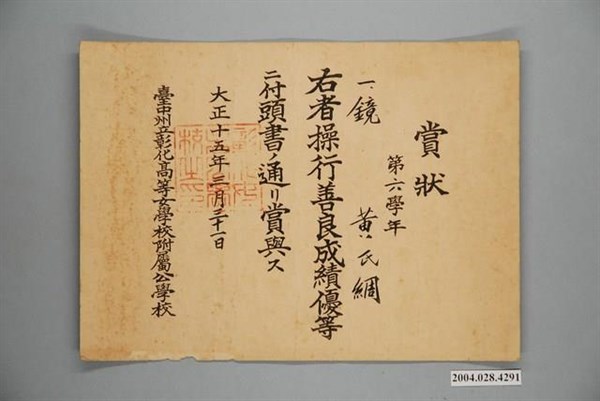 賞狀
第六學年
黃氏綢
一、鏡
右者操行善良成績優等
ニ付頭書ノ通リ賞與ス
大正十五年三月三十一日
臺中州立彰化高等女學校附屬公學校
2004.028.4291